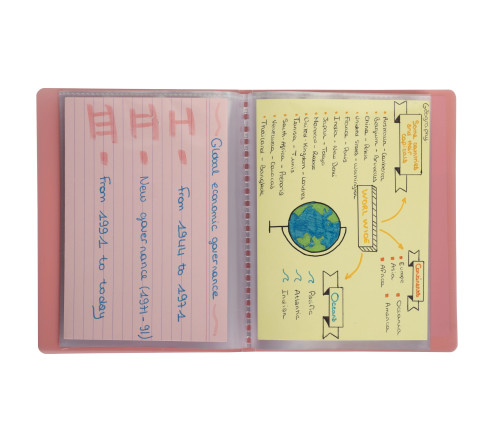 Global economic governance
I • from 1944 to 1971
II • New governance (1971-91)
III • from 1991 to today
Geography
Some countries
and their
capitals
• Belgium - Brussels
• China -
• United States - Washington
• France - Paris
• India - New Delhi
• Japan - Tokyo
• Morocco - Rabat
• United Kingdom -
• Tunisia - Tunis
• South Africa - Pretoria
• Venezuela - Caracas
• Thailand -
WORLD WIDE
Continents
• Europe • Oceania
• Asia • America
• Africa
Oceans
Pacific
Atlantic
Indian